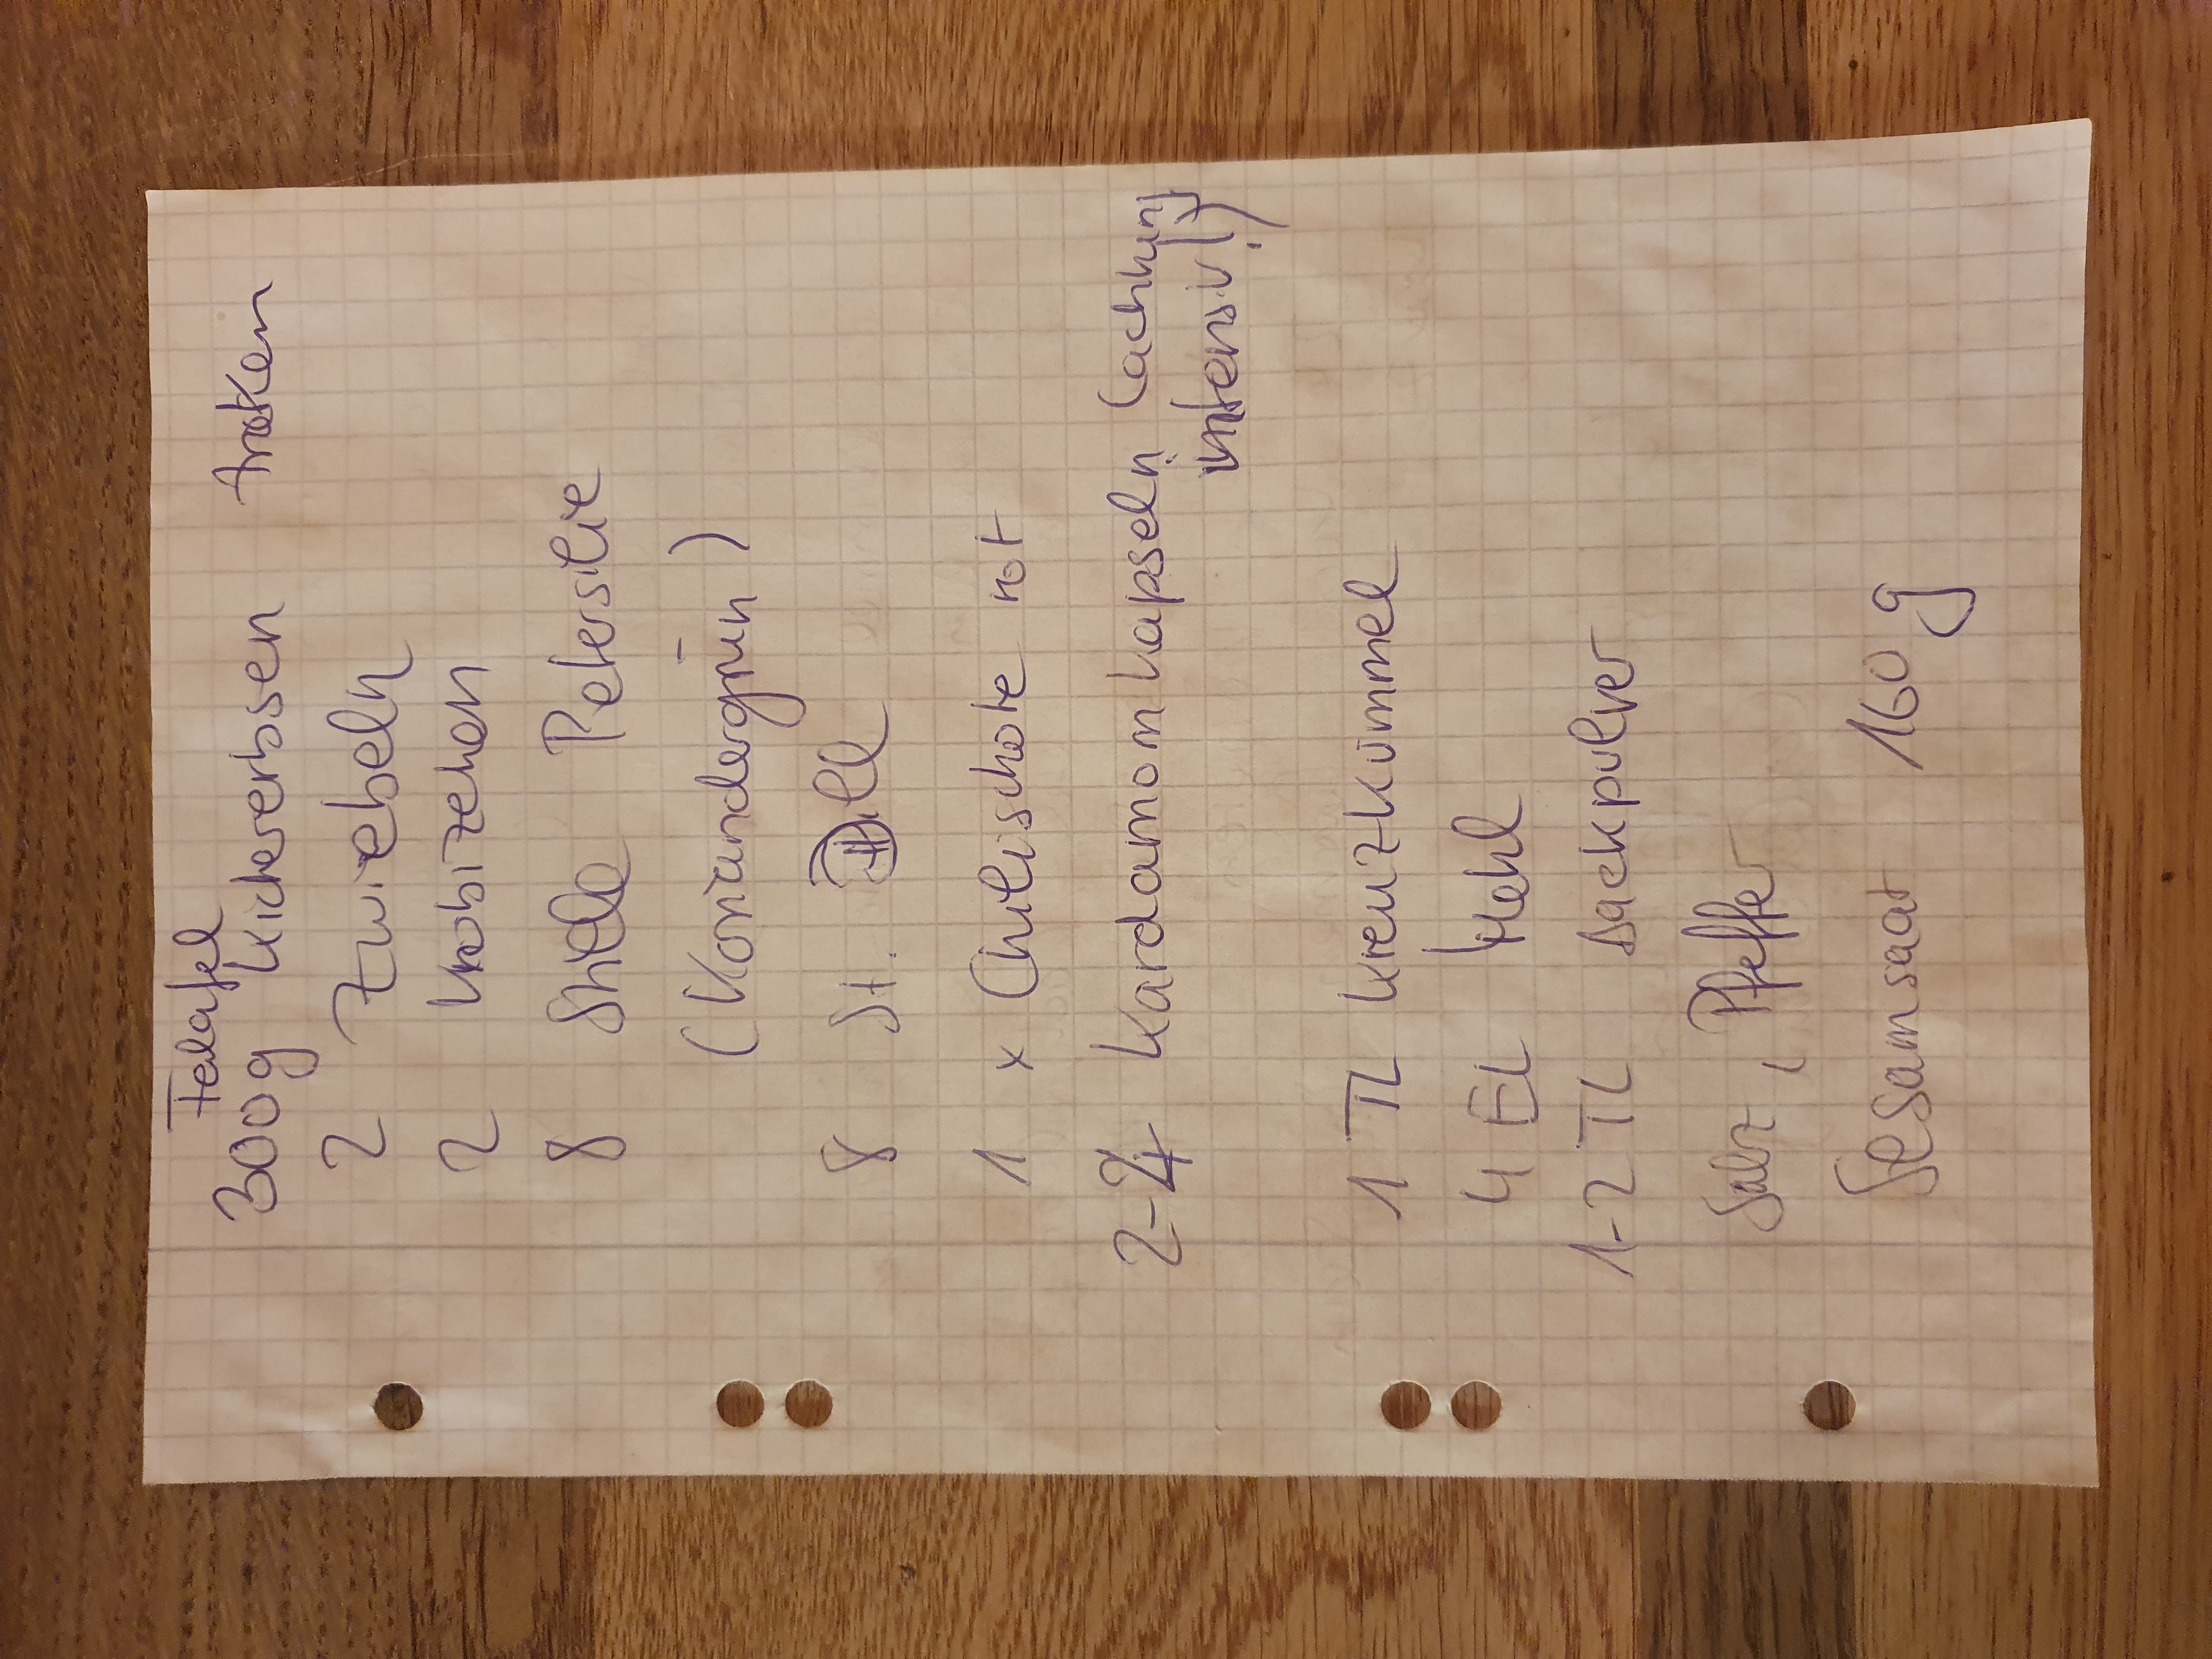 Felafel
300g Kichererbsen trocken
2 Zwiebeln
2 Knobizehen
8 Stiele Petersilie
(Koriandergrün)
8 St. Dill
1 x Chilischote rot
2-4 Kardamomkapseln (achtung
intensiv!)
1 TL Kreuzkümmel
4 EL Mehl
1-2 TL Backpulver
Salz, Pfeffer
Sesamsaat 160 g